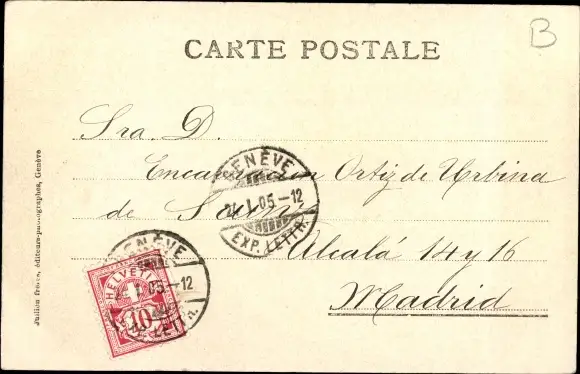 B
CARTE POSTALE
Sra. D.
Encarnación Ortiz de Urbina
de
Alcalá 14 y 16
Madrid
GENÈVE
24. I. 05 – 12
EXP. LETTR.
GENÈVE
I. 05 – 12
LETTR.
HELVETIA
10
Jullien frères, éditeurs-photographes, Genève